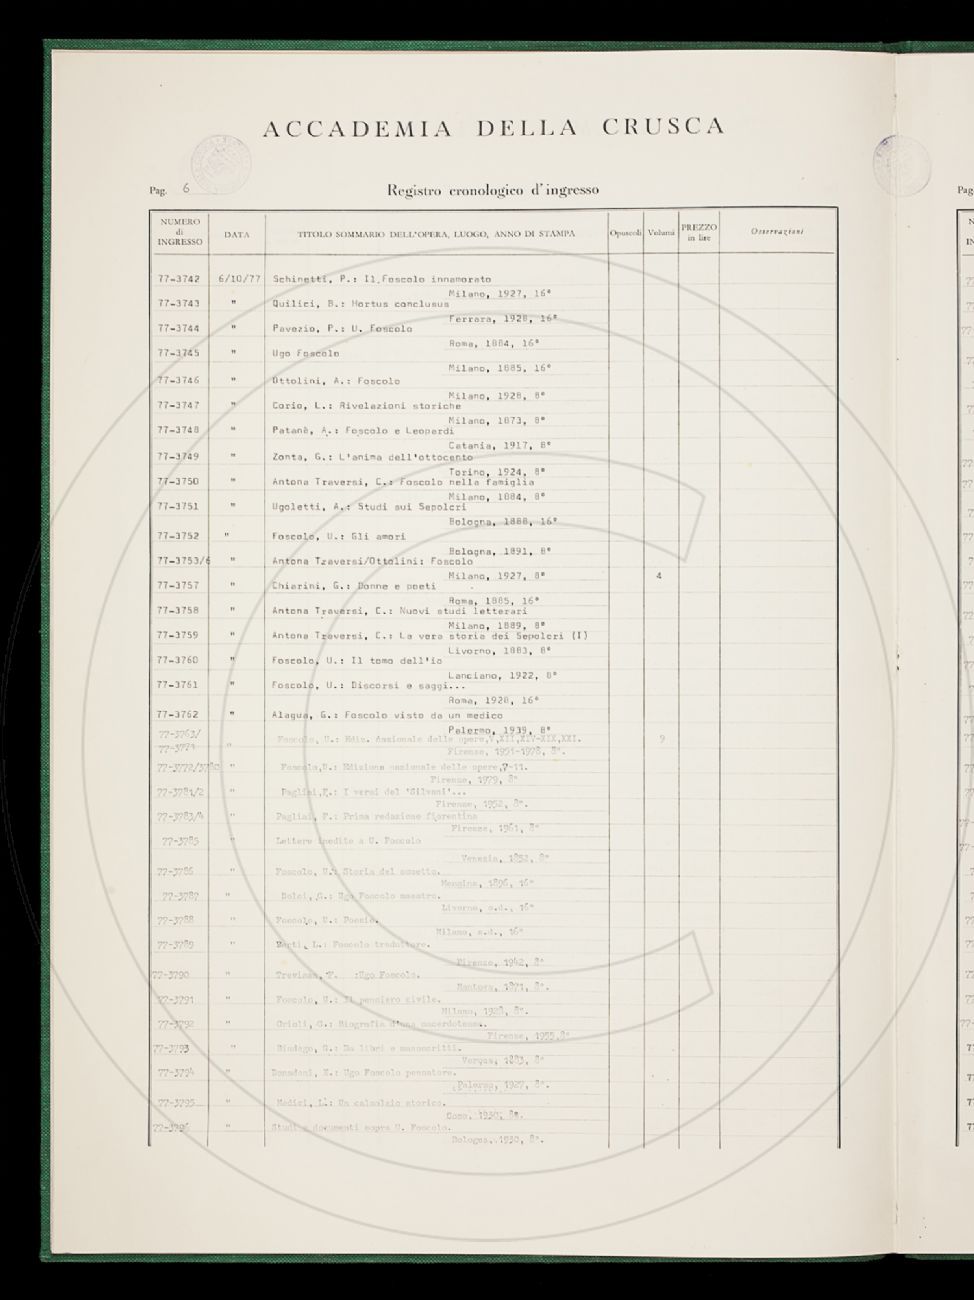 ACCADEMIA DELLA CRUSCA
Pag. 6
Registro cronologico d'ingresso
NUMERO di INGRESSO DATA TITOLO SOMMARIO DELL'OPERA, LUOGO, ANNO DI STAMPA Opuscoli Volumi PREZZO in lire Osservazioni
77-3742 6/10/77 Schinetti, P.: Il Foscolo innamorato
Milano, 1927, 16°
77-3743 " Quilici, B.: Hortus conclusus
Ferrara, 1928, 16°
77-3744 " Pavezio, P.: U. Foscolo
Roma, 1884, 16°
77-3745 " Ugo Foscolo
Milano, 1885, 16°
77-3746 " Ottolini, A.: Foscolo
Milano, 1928, 8°
77-3747 " Corio, L.: Rivelazioni storiche
Milano, 1873, 8°
77-3748 " Patanè, A.: Foscolo e Leopardi
Catania, 1917, 8°
77-3749 " Zonta, G.: L'anima dell'ottocento
Torino, 1924, 8°
77-3750 " Antona Traversi, C.: Foscolo nella famiglia
Milano, 1884, 8°
77-3751 " Ugoletti, A.: Studi sui Sepolcri
Bologna, 1888, 16°
77-3752 " Foscolo, U.: Gli amori
Bologna, 1891, 8°
77-3753/6 " Antona Traversi/Ottolini: Foscolo
Milano, 1927, 8° 4
77-3757 " Chiarini, G.: Donne e poeti
Roma, 1885, 16°
77-3758 " Antona Traversi, C.: Nuovi studi letterari
Milano, 1889, 8°
77-3759 " Antona Traversi, C.: La vera storia dei Sepolcri (I)
Livorno, 1883, 8°
77-3760 " Foscolo, U.: Il tomo dell'io
Lanciano, 1922, 8°
77-3761 " Foscolo, U.: Discorsi e saggi...
Roma, 1928, 16°
77-3762 " Alagua, G.: Foscolo visto da un medico
Palermo, 1939, 8°
77-3763/ Foscolo, U.: Ediz. nazionale delle opere,V,XII,XIV-XIX,XXI. 9
77-3771 " Firenze, 1951-1978, 8°.
77-3772/3780 " Foscolo,U.: Edizione nazionale delle opere,7-11.
Firenze, 1979, 8°
77-3781/2 " Pagliai,F.: I versi del 'Silvani'...
Firenze, 1952, 8°.
77-3783/4 " Pagliai, F.: Prima redazione fiorentina
Firenze, 1961, 8°
77-3785 " Lettere inedite a U. Foscolo
Venezia, 1852, 8°
77-3786 " Foscolo, U.: Storia del sonetto.
Messina, 1896, 16°
77-3787 " Dolci, G.: Ugo Foscolo maestro.
Livorno, s.d., 16°
77-3788 " Foscolo, U.: Poesie.
Milano, s.d., 16°
77-3789 " Berti, L.: Foscolo traduttore.
Firenze, 1942, 8°
77-3790 " Trevisan, F. :Ugo Foscolo.
Mantova, 1871, 8°.
77-3791 " Foscolo, U.: Il pensiero civile.
Milano, 1928, 8°.
77-3792 " G.: Biografia d'una sacerdotessa.
Firenze, 1955,8°
77-3793 " Biadego, G.: Da libri e manoscritti.
Verona, 1883, 8°
77-3794 " Donadoni, E.: Ugo Foscolo pensatore.
Palermo, 1927, 8°.
77-3795 " Medici, L.: Un calzolaio storico.
Roma, 1930, 8°.
77-3796 " Studi e documenti sopra U. Foscolo.
Bologna, 1930, 8°.